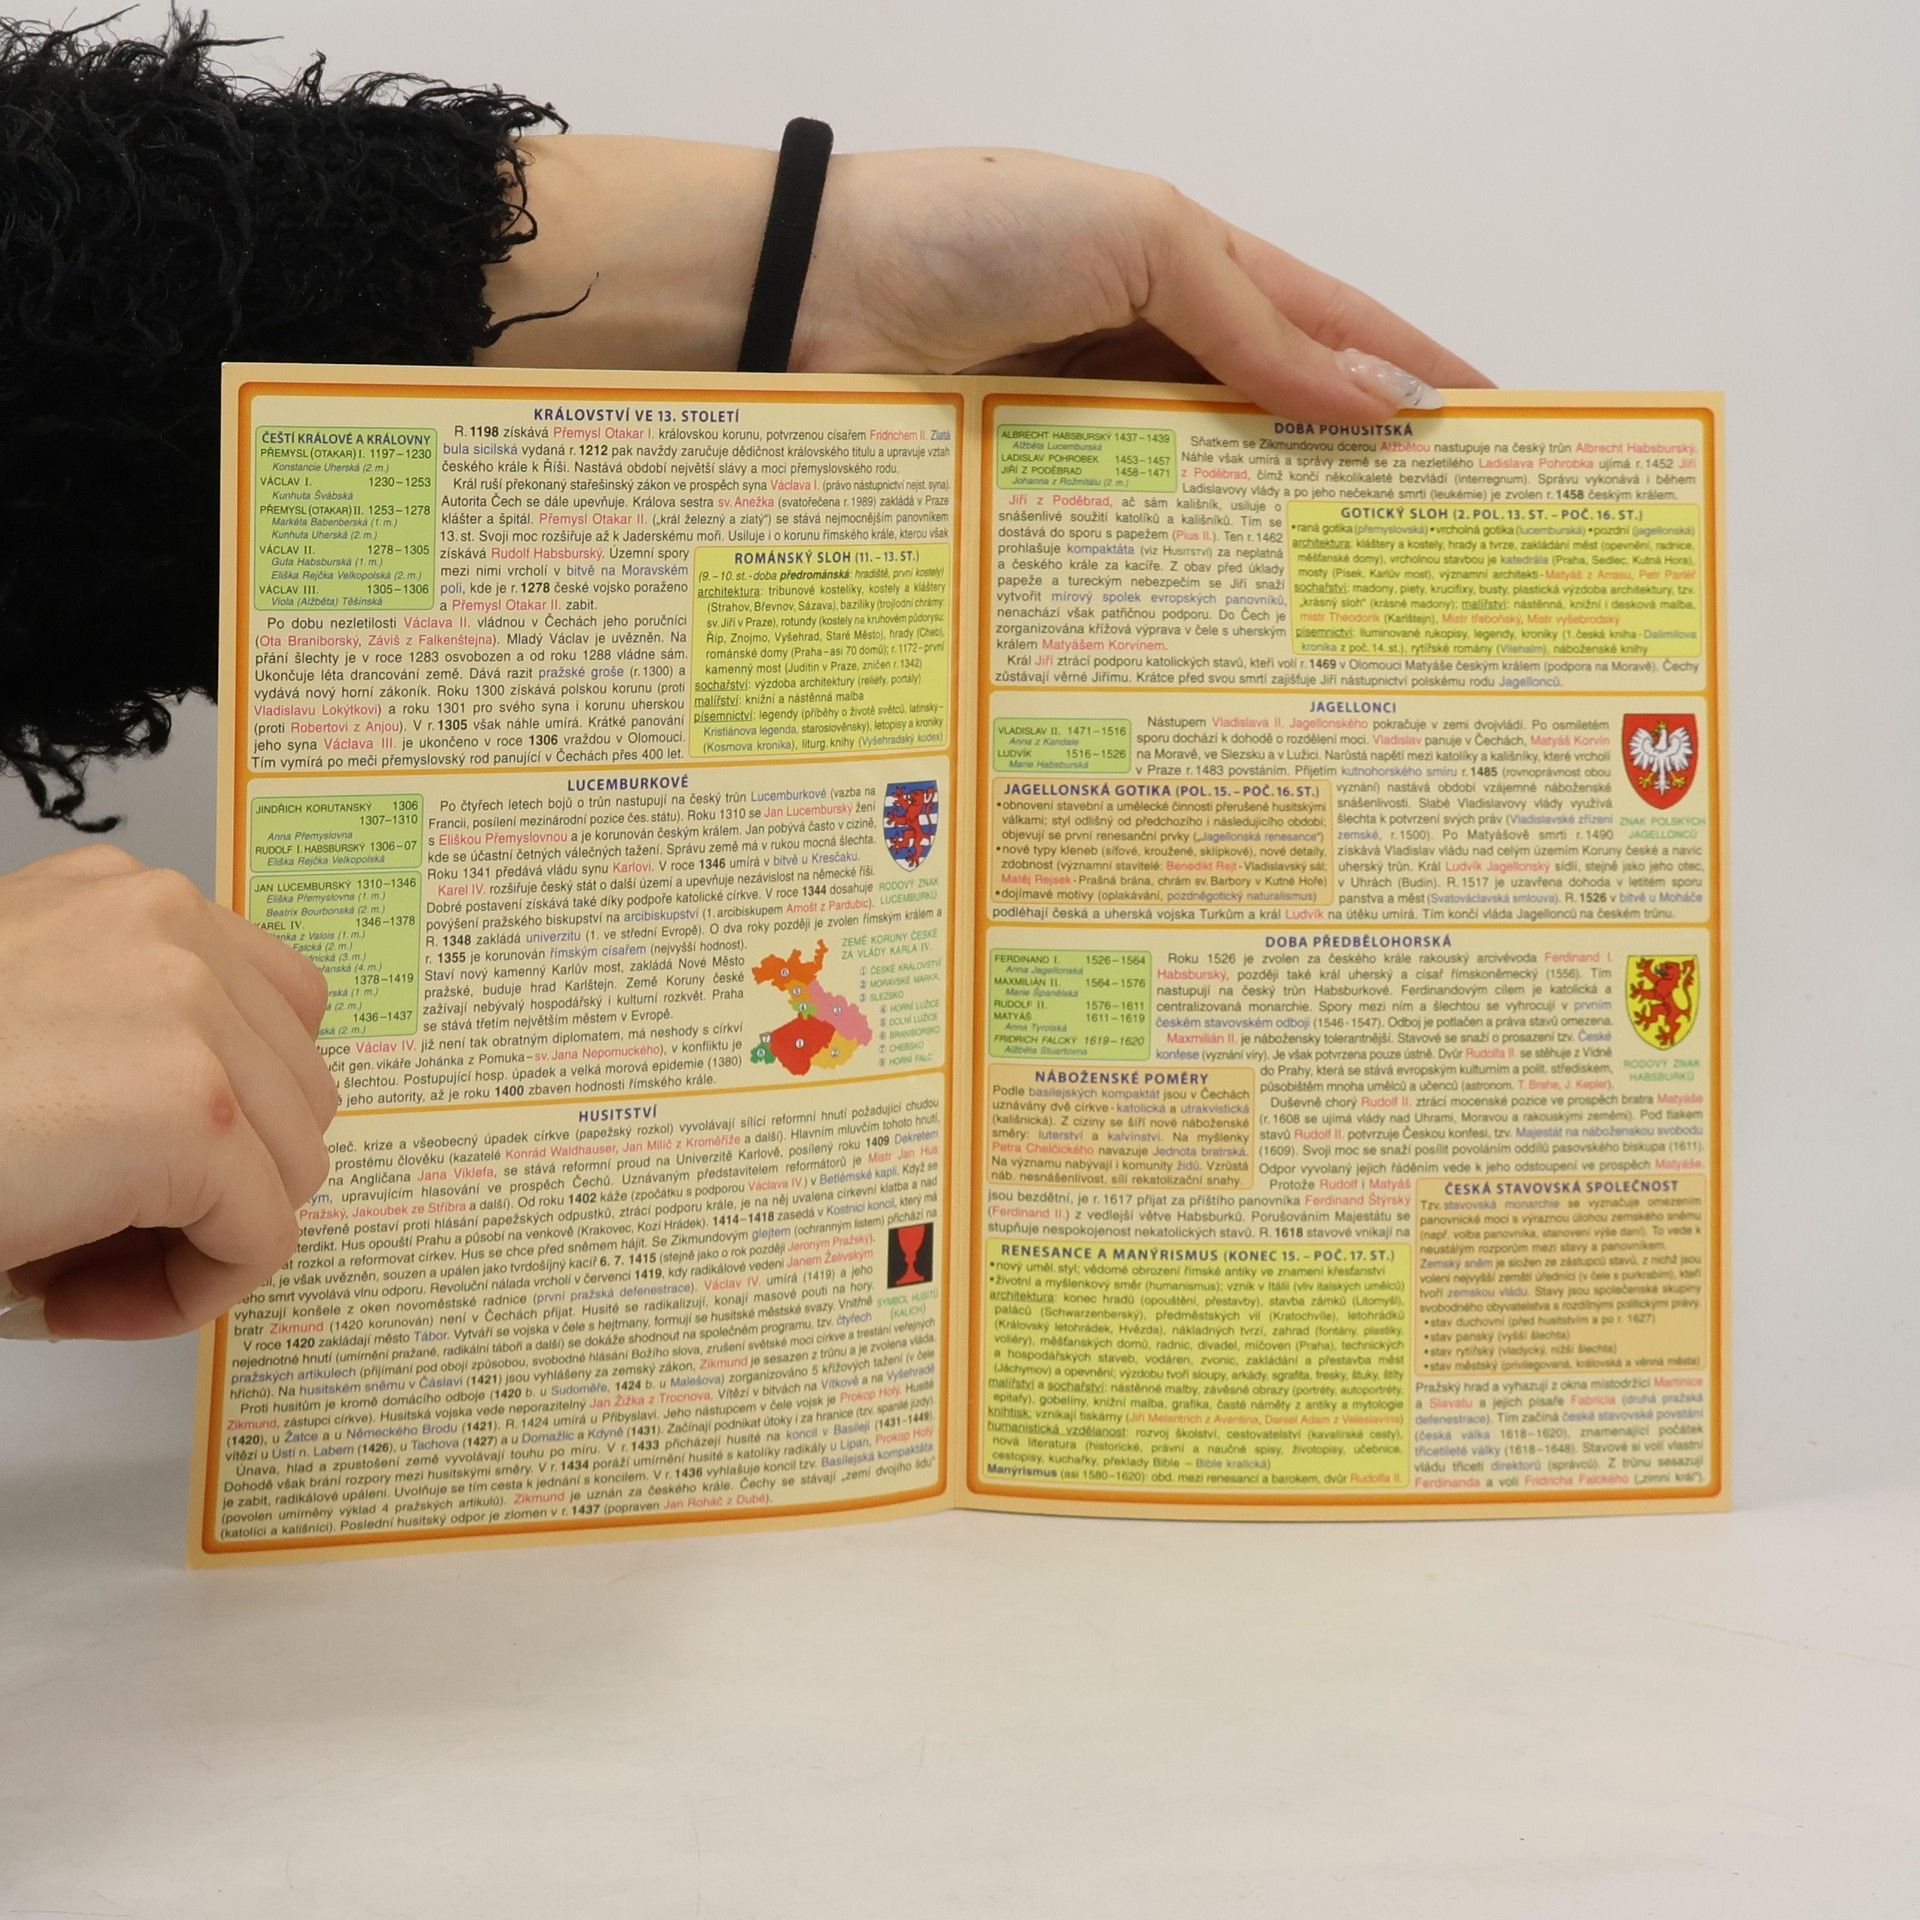 KRÁLOVSTVÍ VE 13. STOLETÍ
ČEŠTÍ KRÁLOVÉ A KRÁLOVNY
PŘEMYSL (OTAKAR) I. 1197–1230
Konstancie Uherská (2. m.)
VÁCLAV I. 1230–1253
Kunhuta Švábská
PŘEMYSL (OTAKAR) II. 1253–1278
Markéta Babenberská (1. m.)
Kunhuta Uherská (2. m.)
VÁCLAV II. 1278–1305
Guta Habsburská (1. m.)
Eliška Rejčka Velkopolská (2. m.)
VÁCLAV III. 1305–1306
Viola (Alžběta) Těšínská
R. 1198 získává Přemysl Otakar I. královskou korunu, potvrzenou císařem Fridrichem II. Zlatá
bula sicilská vydaná r. 1212 pak navždy zaručuje dědičnost královského titulu a upravuje vztah
českého krále k Říši. Nastává období největší slávy a moci přemyslovského rodu.
Král ruší překonaný stařešinský zákon ve prospěch syna Václava I. (právo nástupnictví nejst. syna).
Autorita Čech se dále upevňuje. Králova sestra sv. Anežka (svatořečena r. 1989) zakládá v Praze
klášter a špitál. Přemysl Otakar II. („král železný a zlatý“) se stává nejmocnějším panovníkem
13. st. Svoji moc rozšiřuje až k Jaderskému moři. Usiluje i o korunu římského krále, kterou však
získává Rudolf Habsburský. Územní spory
mezi nimi vrcholí v bitvě na Moravském
poli, kde je r. 1278 české vojsko poraženo
a Přemysl Otakar II. zabit.
Po dobu nezletilosti Václava II. vládnou v Čechách jeho poručníci
(Ota Braniborský, Záviš z Falkenštejna). Mladý Václav je uvězněn. Na
přání šlechty je v roce 1283 osvobozen a od roku 1288 vládne sám.
Ukončuje léta drancování země. Dává razit pražské groše (r. 1300) a
vydává nový horní zákoník. Roku 1300 získává polskou korunu (proti
Vladislavu Lokýtkovi) a roku 1301 pro svého syna i korunu uherskou
(proti Robertovi z Anjou). V r. 1305 však náhle umírá. Krátké panování
jeho syna Václava III. je ukončeno v roce 1306 vraždou v Olomouci.
Tím vymírá po meči přemyslovský rod panující v Čechách přes 400 let.
ROMÁNSKÝ SLOH (11. – 13. ST.)
(9. – 10. st. - doba předrománská: hradiště, první kostely)
architektura: tribunové kostelíky, kostely a kláštery
(Strahov, Břevnov, Sázava), baziliky (trojlodní chrámy:
sv. Jiří v Praze), rotundy (kostely na kruhovém půdorysu:
Říp, Znojmo, Vyšehrad, Staré Město), hrady (Cheb),
románské domy (Praha – asi 70 domů); r. 1172 – první
kamenný most (Juditin v Praze, zničen r. 1342)
sochařství: výzdoba architektury (reliéfy, portály)
malířství: knižní a nástěnná malba
písemnictví: legendy (příběhy o životě světců, latinsky –
Kristiánova legenda, staroslověnsky), letopisy a kroniky
(Kosmova kronika), liturg. knihy (Vyšehradský kodex)
LUCEMBURKOVÉ
JINDŘICH KORUTANSKÝ 1306
1307–1310
Anna Přemyslovna
RUDOLF I. HABSBURSKÝ 1306–07
Eliška Rejčka Velkopolská
JAN LUCEMBURSKÝ 1310–1346
Eliška Přemyslovna (1. m.)
Beatrix Bourbonská (2. m.)
KAREL IV. 1346–1378
z Valois (1. m.)
Falcká (2. m.)
(3. m.)
(4. m.)
1378–1419
(1. m.)
(2. m.)
1436–1437
(2. m.)
Po čtyřech letech bojů o trůn nastupují na český trůn Lucemburkové (vazba na
Francii, posílení mezinárodní pozice čes. státu). Roku 1310 se Jan Lucemburský žení
s Eliškou Přemyslovnou a je korunován českým králem. Jan pobývá často v cizině,
kde se účastní četných válečných tažení. Správu země má v rukou mocná šlechta.
Roku 1341 předává vládu synu Karlovi. V roce 1346 umírá v bitvě u Kresčaku.
Karel IV. rozšiřuje český stát o další území a upevňuje nezávislost na německé říši.
Dobré postavení získává také díky podpoře katolické církve. V roce 1344 dosahuje
povýšení pražského biskupství na arcibiskupství (1. arcibiskupem Arnošt z Pardubic).
R. 1348 zakládá univerzitu (1. ve střední Evropě). O dva roky později je zvolen římským králem a
r. 1355 je korunován římským císařem (nejvyšší hodnost).
Staví nový kamenný Karlův most, zakládá Nové Město
pražské, buduje hrad Karlštejn. Země Koruny české
zažívají nebývalý hospodářský i kulturní rozkvět. Praha
se stává třetím největším městem v Evropě.
Václav IV. již není tak obratným diplomatem, má neshody s církví
gen. vikáře Johánka z Pomuka – sv. Jana Nepomuckého), v konfliktu je
šlechtou. Postupující hosp. úpadek a velká morová epidemie (1380)
jeho autority, až je roku 1400 zbaven hodnosti římského krále.
RODOVÝ ZNAK
LUCEMBURKŮ
ZEMĚ KORUNY ČESKÉ
ZA VLÁDY KARLA IV.
① ČESKÉ KRÁLOVSTVÍ
② MORAVSKÉ MARKR.
③ SLEZSKO
④ HORNÍ LUŽICE
⑤ DOLNÍ LUŽICE
⑥ BRANIBORSKO
⑦ CHEBSKO
⑧ HORNÍ FALC
HUSITSTVÍ
krize a všeobecný úpadek církve (papežský rozkol) vyvolávají sílící reformní hnutí požadující chudou
prostému člověku (kazatelé Konrád Waldhauser, Jan Milíč z Kroměříže a další). Hlavním mluvčím tohoto hnutí,
na Angličana Jana Viklefa, se stává reformní proud na Univerzitě Karlově, posílený roku 1409 Dekretem
upravujícím hlasování ve prospěch Čechů. Uznávaným představitelem reformátorů je Mistr Jan Hus
Pražský, Jakoubek ze Stříbra a další). Od roku 1402 káže (zpočátku s podporou Václava IV.) v Betlémské kapli. Když se
otevřeně postaví proti hlásání papežských odpustků, ztrácí podporu krále, je na něj uvalena církevní klatba a nad
Hus opouští Prahu a působí na venkově (Krakovec, Kozí Hrádek). 1414–1418 zasedá v Kostnici koncil, který má
rozkol a reformovat církev. Hus se chce před sněmem hájit. Se Zikmundovým glejtem (ochranným listem) přichází na
je však uvězněn, souzen a upálen jako tvrdošíjný kacíř 6. 7. 1415 (stejně jako o rok později Jeroným Pražský).
smrt vyvolává vlnu odporu. Revoluční nálada vrcholí v červenci 1419, kdy radikálové vedení Janem Želivským
vyhazují konšele z oken novoměstské radnice (první pražská defenestrace). Václav IV. umírá (1419) a jeho
bratr Zikmund (1420 korunován) není v Čechách přijat. Husité se radikalizují, konají masové pouti na hory.
V roce 1420 zakládají město Tábor. Vytváří se vojska v čele s hejtmany, formují se husitské městské svazy. Vnitřně
nejednotné hnutí (umírnění pražané, radikální táboři a další) se dokáže shodnout na společném programu, tzv. čtyřech
pražských artikulech (přijímání pod obojí způsobou, svobodné hlásání Božího slova, zrušení světské moci církve a trestání veřejných
hříchů). Na husitském sněmu v Čáslavi (1421) jsou vyhlášeny za zemský zákon, Zikmund je sesazen z trůnu a je zvolena vláda.
Proti husitům je kromě domácího odboje (1420 b. u Sudoměře, 1424 b. u Malešova) zorganizováno 5 křížových tažení (v čele
Zikmund, zástupci církve). Husitská vojska vede neporazitelný Jan Žižka z Trocnova. Vítězí v bitvách na Vítkově a na Vyšehradě
(1420), u Žatce a u Německého Brodu (1421). R. 1424 umírá u Přibyslavi. Jeho nástupcem v čele vojsk je Prokop Holý. Husité
vítězí u Ústí n. Labem (1426), u Tachova (1427) a u Domažlic a Kdyně (1431). Začínají podnikat útoky i za hranice (tzv. spanilé jízdy).
Únava, hlad a zpustošení země vyvolávají touhu po míru. V r. 1433 přicházejí husité na koncil v Basileji (1431–1449).
Dohodě však brání rozpory mezi husitskými směry. V r. 1434 poráží umírnění husité s katolíky radikály u Lipan, Prokop Holý
je zabit, radikálové upáleni. Uvolňuje se tím cesta k jednání s koncilem. V r. 1436 vyhlašuje koncil tzv. Basilejská kompaktáta
(povolen umírněný výklad 4 pražských artikulů). Zikmund je uznán za českého krále. Čechy se stávají „zemí dvojího lidu“
(katolíci a kališníci). Poslední husitský odpor je zlomen v r. 1437 (popraven Jan Roháč z Dubé).
SYMBOL HUSITŮ
(KALICH)
DOBA POHUSITSKÁ
ALBRECHT HABSBURSKÝ 1437–1439
Alžběta Lucemburská
LADISLAV POHROBEK 1453–1457
JIŘÍ Z PODĚBRAD 1458–1471
Johana z Rožmitálu (2. m.)
Sňatkem se Zikmundovou dcerou Alžbětou nastupuje na český trůn Albrecht Habsburský.
Náhle však umírá a správy země se za nezletilého Ladislava Pohrobka ujímá r. 1452 Jiří
z Poděbrad, čímž končí několikaleté bezvládí (interregnum). Správu vykonává i během
Ladislavovy vlády a po jeho nečekané smrti (leukémie) je zvolen r. 1458 českým králem.
Jiří z Poděbrad, ač sám kališník, usiluje o
snášenlivé soužití katolíků a kališníků. Tím se
dostává do sporu s papežem (Pius II.). Ten r. 1462
prohlašuje kompaktáta (viz HUSITSTVÍ) za neplatná
a českého krále za kacíře. Z obav před úklady
papeže a tureckým nebezpečím se Jiří snaží
vytvořit mírový spolek evropských panovníků,
nenachází však patřičnou podporu. Do Čech je
zorganizována křížová výprava v čele s uherským
králem Matyášem Korvínem.
Král Jiří ztrácí podporu katolických stavů, kteří volí r. 1469 v Olomouci Matyáše českým králem (podpora na Moravě). Čechy
zůstávají věrné Jiřímu. Krátce před svou smrtí zajišťuje Jiří nástupnictví polskému rodu Jagellonců.
GOTICKÝ SLOH (2. POL. 13. ST. – POČ. 16. ST.)
• raná gotika (přemyslovská) • vrcholná gotika (lucemburská) • pozdní (jagellonská)
architektura: kláštery a kostely, hrady a tvrze, zakládání měst (opevnění, radnice,
měšťanské domy), vrcholnou stavbou je katedrála (Praha, Sedlec, Kutná Hora),
mosty (Písek, Karlův most), významní architekti - Matyáš z Arrasu, Petr Parléř
sochařství: madony, piety, krucifixy, busty, plastická výzdoba architektury, tzv.
„krásný sloh“ (krásné madony); malířství: nástěnná, knižní i desková malba,
mistr Theodorik (Karlštejn), Mistr třeboňský, Mistr vyšebrodský
písemnictví: iluminované rukopisy, legendy, kroniky (1. česká kniha - Dalimilova
kronika z poč. 14. st.), rytířské romány (Vilehalm), náboženské knihy
JAGELLONCI
VLADISLAV II. 1471–1516
Anna z Kandale
LUDVÍK 1516–1526
Marie Habsburská
Nástupem Vladislava II. Jagellonského pokračuje v zemi dvojvládí. Po osmiletém
sporu dochází k dohodě o rozdělení moci. Vladislav panuje v Čechách, Matyáš Korvín
na Moravě, ve Slezsku a v Lužici. Narůstá napětí mezi katolíky a kališníky, které vrcholí
v Praze r. 1483 povstáním. Přijetím kutnohorského smíru r. 1485 (rovnoprávnost obou
vyznání) nastává období vzájemné náboženské
snášenlivosti. Slabé Vladislavovy vlády využívá
šlechta k potvrzení svých práv (Vladislavské zřízení
zemské, r. 1500). Po Matyášově smrti r. 1490
získává Vladislav vládu nad celým územím Koruny české a navíc
uherský trůn. Král Ludvík Jagellonský sídlí, stejně jako jeho otec,
v Uhrách (Budín). R. 1517 je uzavřena dohoda v letitém sporu
panstva a měst (Svatováclavská smlouva). R. 1526 v bitvě u Moháče
podléhají česká a uherská vojska Turkům a král Ludvík na útěku umírá. Tím končí vláda Jagellonců na českém trůnu.
ZNAK POLSKÝCH
JAGELLONCŮ
JAGELLONSKÁ GOTIKA (POL. 15. – POČ. 16. ST.)
• obnovení stavební a umělecké činnosti přerušené husitskými
válkami; styl odlišný od předchozího i následujícího období;
objevují se první renesanční prvky („Jagellonská renesance“)
• nové typy kleneb (síťové, kroužené, sklípkové), nové detaily,
zdobnost (významní stavitelé: Benedikt Rejt - Vladislavský sál;
Matěj Rejsek - Prašná brána, chrám sv. Barbory v Kutné Hoře)
• dojímavé motivy (oplakávání, pozdněgotický naturalismus)
DOBA PŘEDBĚLOHORSKÁ
FERDINAND I. 1526–1564
Anna Jagellonská
MAXMILIÁN II. 1564–1576
Marie Španělská
RUDOLF II. 1576–1611
MATYÁŠ 1611–1619
Anna Tyrolská
FRIDRICH FALCKÝ 1619–1620
Alžběta Stuartovna
Roku 1526 je zvolen za českého krále rakouský arcivévoda Ferdinand I.
Habsburský, později také král uherský a císař římskoněmecký (1556). Tím
nastupují na český trůn Habsburkové. Ferdinandovým cílem je katolická a
centralizovaná monarchie. Spory mezi ním a šlechtou se vyhrocují v prvním
českém stavovském odboji (1546-1547). Odboj je potlačen a práva stavů omezena.
Maxmilián II. je nábožensky tolerantnější. Stavové se snaží o prosazení tzv. České
konfese (vyznání víry). Je však potvrzena pouze ústně. Dvůr Rudolfa II. se stěhuje z Vídně
do Prahy, která se stává evropským kulturním a polit. střediskem,
působištěm mnoha umělců a učenců (astronom. T. Brahe, J. Kepler).
Duševně chorý Rudolf II. ztrácí mocenské pozice ve prospěch bratra Matyáše
(r. 1608 se ujímá vlády nad Uhrami, Moravou a rakouskými zeměmi). Pod tlakem
stavů Rudolf II. potvrzuje Českou konfesi, tzv. Majestát na náboženskou svobodu
(1609). Svoji moc se snaží posílit povoláním oddílů pasovského biskupa (1611).
Odpor vyvolaný jejich řáděním vede k jeho odstoupení ve prospěch Matyáše.
Protože Rudolf i Matyáš
jsou bezdětní, je r. 1617 přijat za příštího panovníka Ferdinand Štýrský
(Ferdinand II.) z vedlejší větve Habsburků. Porušováním Majestátu se
stupňuje nespokojenost nekatolických stavů. R. 1618 stavové vnikají na
RODOVÝ ZNAK
HABSBURKŮ
NÁBOŽENSKÉ POMĚRY
Podle basilejských kompaktát jsou v Čechách
uznávány dvě církve - katolická a utrakvistická
(kališnická). Z ciziny se šíří nové náboženské
směry: luterství a kalvínství. Na myšlenky
Petra Chelčického navazuje Jednota bratrská.
Na významu nabývají i komunity židů. Vzrůstá
náb. nesnášenlivost, sílí rekatolizační snahy.
RENESANCE A MANÝRISMUS (KONEC 15. – POČ. 17. ST.)
• nový uměl. styl; vědomé obrození římské antiky ve znamení křesťanství
• životní a myšlenkový směr (humanismus); vznik v Itálii (vliv italských umělců)
architektura: konec hradů (opouštění, přestavby), stavba zámků (Litomyšl),
paláců (Schwarzenberský), předměstských vil (Kratochvíle), letohrádků
(Královský letohrádek, Hvězda), nákladných tvrzí, zahrad (fontány, plastiky,
voliéry), měšťanských domů, radnic, divadel, míčoven (Praha), technických
a hospodářských staveb, vodáren, zvonic, zakládání a přestavba měst
(Jáchymov) a opevnění; výzdobu tvoří sloupy, arkády, sgrafita, fresky, štuky, štíty
malířství a sochařství: nástěnné malby, závěsné obrazy (portréty, autoportréty,
epitafy), gobelíny, knižní malba, grafika, časté náměty z antiky a mytologie
knihtisk: vznikají tiskárny (Jiří Melantrich z Aventina, Daniel Adam z Veleslavína)
humanistická vzdělanost: rozvoj školství, cestovatelství (kavalírské cesty),
nová literatura (historické, právní a naučné spisy, životopisy, učebnice,
cestopisy, kuchařky, překlady Bible – Bible kralická)
Manýrismus (asi 1580–1620): obd. mezi renesancí a barokem, dvůr Rudolfa II.
ČESKÁ STAVOVSKÁ SPOLEČNOST
Tzv. stavovská monarchie se vyznačuje omezením
panovnické moci s výraznou úlohou zemského sněmu
(např. volba panovníka, stanovení výše daní). To vede k
neustálým rozporům mezi stavy a panovníkem.
Zemský sněm je složen ze zástupců stavů, z nichž jsou
voleni nejvyšší zemští úředníci (v čele s purkrabím), kteří
tvoří zemskou vládu. Stavy jsou společenské skupiny
svobodného obyvatelstva s rozdílnými politickými právy.
• stav duchovní (před husitstvím a po r. 1627)
• stav panský (vyšší šlechta)
• stav rytířský (vladycký, nižší šlechta)
• stav městský (privilegovaná, královská a věnná města)
Pražský hrad a vyhazují z okna místodržící Martinice
a Slavatu a jejich písaře Fabricia (druhá pražská
defenestrace). Tím začíná české stavovské povstání
(česká válka 1618–1620), znamenající počátek
třicetileté války (1618–1648). Stavové si volí vlastní
vládu třiceti direktorů (správců). Z trůnu sesazují
Ferdinanda a volí Fridricha Falckého („zimní král“).